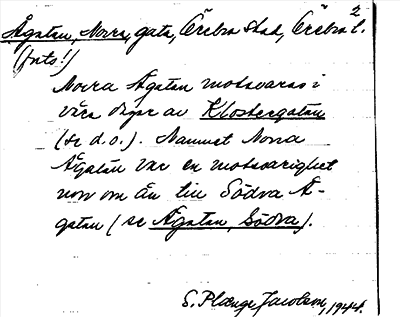 2
Ågatan, Norra, gata, Örebro stad, Örebro l.
(fnts!)
Norra Ågatan motsvaras i
våra dagar av Klostergatan
(se d.o.). Namnet Norra
Ågatan var en motsvarighet
norr om ån till Södra Å-
gatan (se Ågatan, Södra).
S. Plænge Jacobson, 1944.